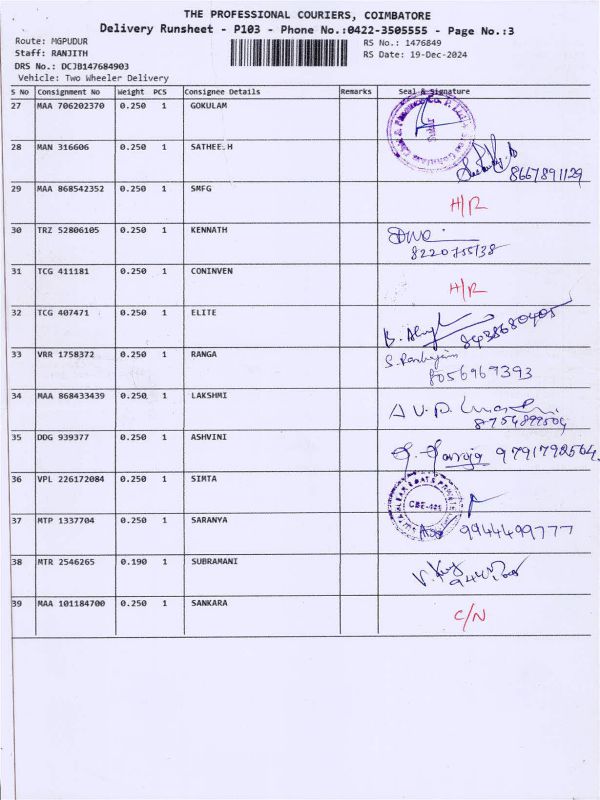 THE PROFESSIONAL COURIERS, COIMBATORE
Delivery Runsheet - P103 - Phone No.:0422-3505555 - Page No.:3
Route: MGPUDUR
Staff: RANJITH
DRS No.: DCJB147684903
Vehicle: Two Wheeler Delivery
RS No.: 1476849
RS Date: 19-Dec-2024
S No Consignment No Weight PCS Consignee Details Remarks Seal & Signature
27 MAA 706202370 0.250 1 GOKULAM
28 MAN 316606 0.250 1 SATHEESH 8667891129
29 MAA 868542352 0.250 1 SMFG H/R
30 TRZ 52806105 0.250 1 KENNATH
8220755138
31 TCG 411181 0.250 1 CONINVEN H/R
32 TCG 407471 0.250 1 ELITE 8438680405
33 VRR 1758372 0.250 1 RANGA
8056969393
34 MAA 868433439 0.250 1 LAKSHMI
35 DDG 939377 0.250 1 ASHVINI 9791792564
36 VPL 226172084 0.250 1 SIMTA CBE-401
37 MTP 1337704 0.250 1 SARANYA 9944499777
38 MTR 2546265 0.190 1 SUBRAMANI
39 MAA 101184700 0.250 1 SANKARA C/N